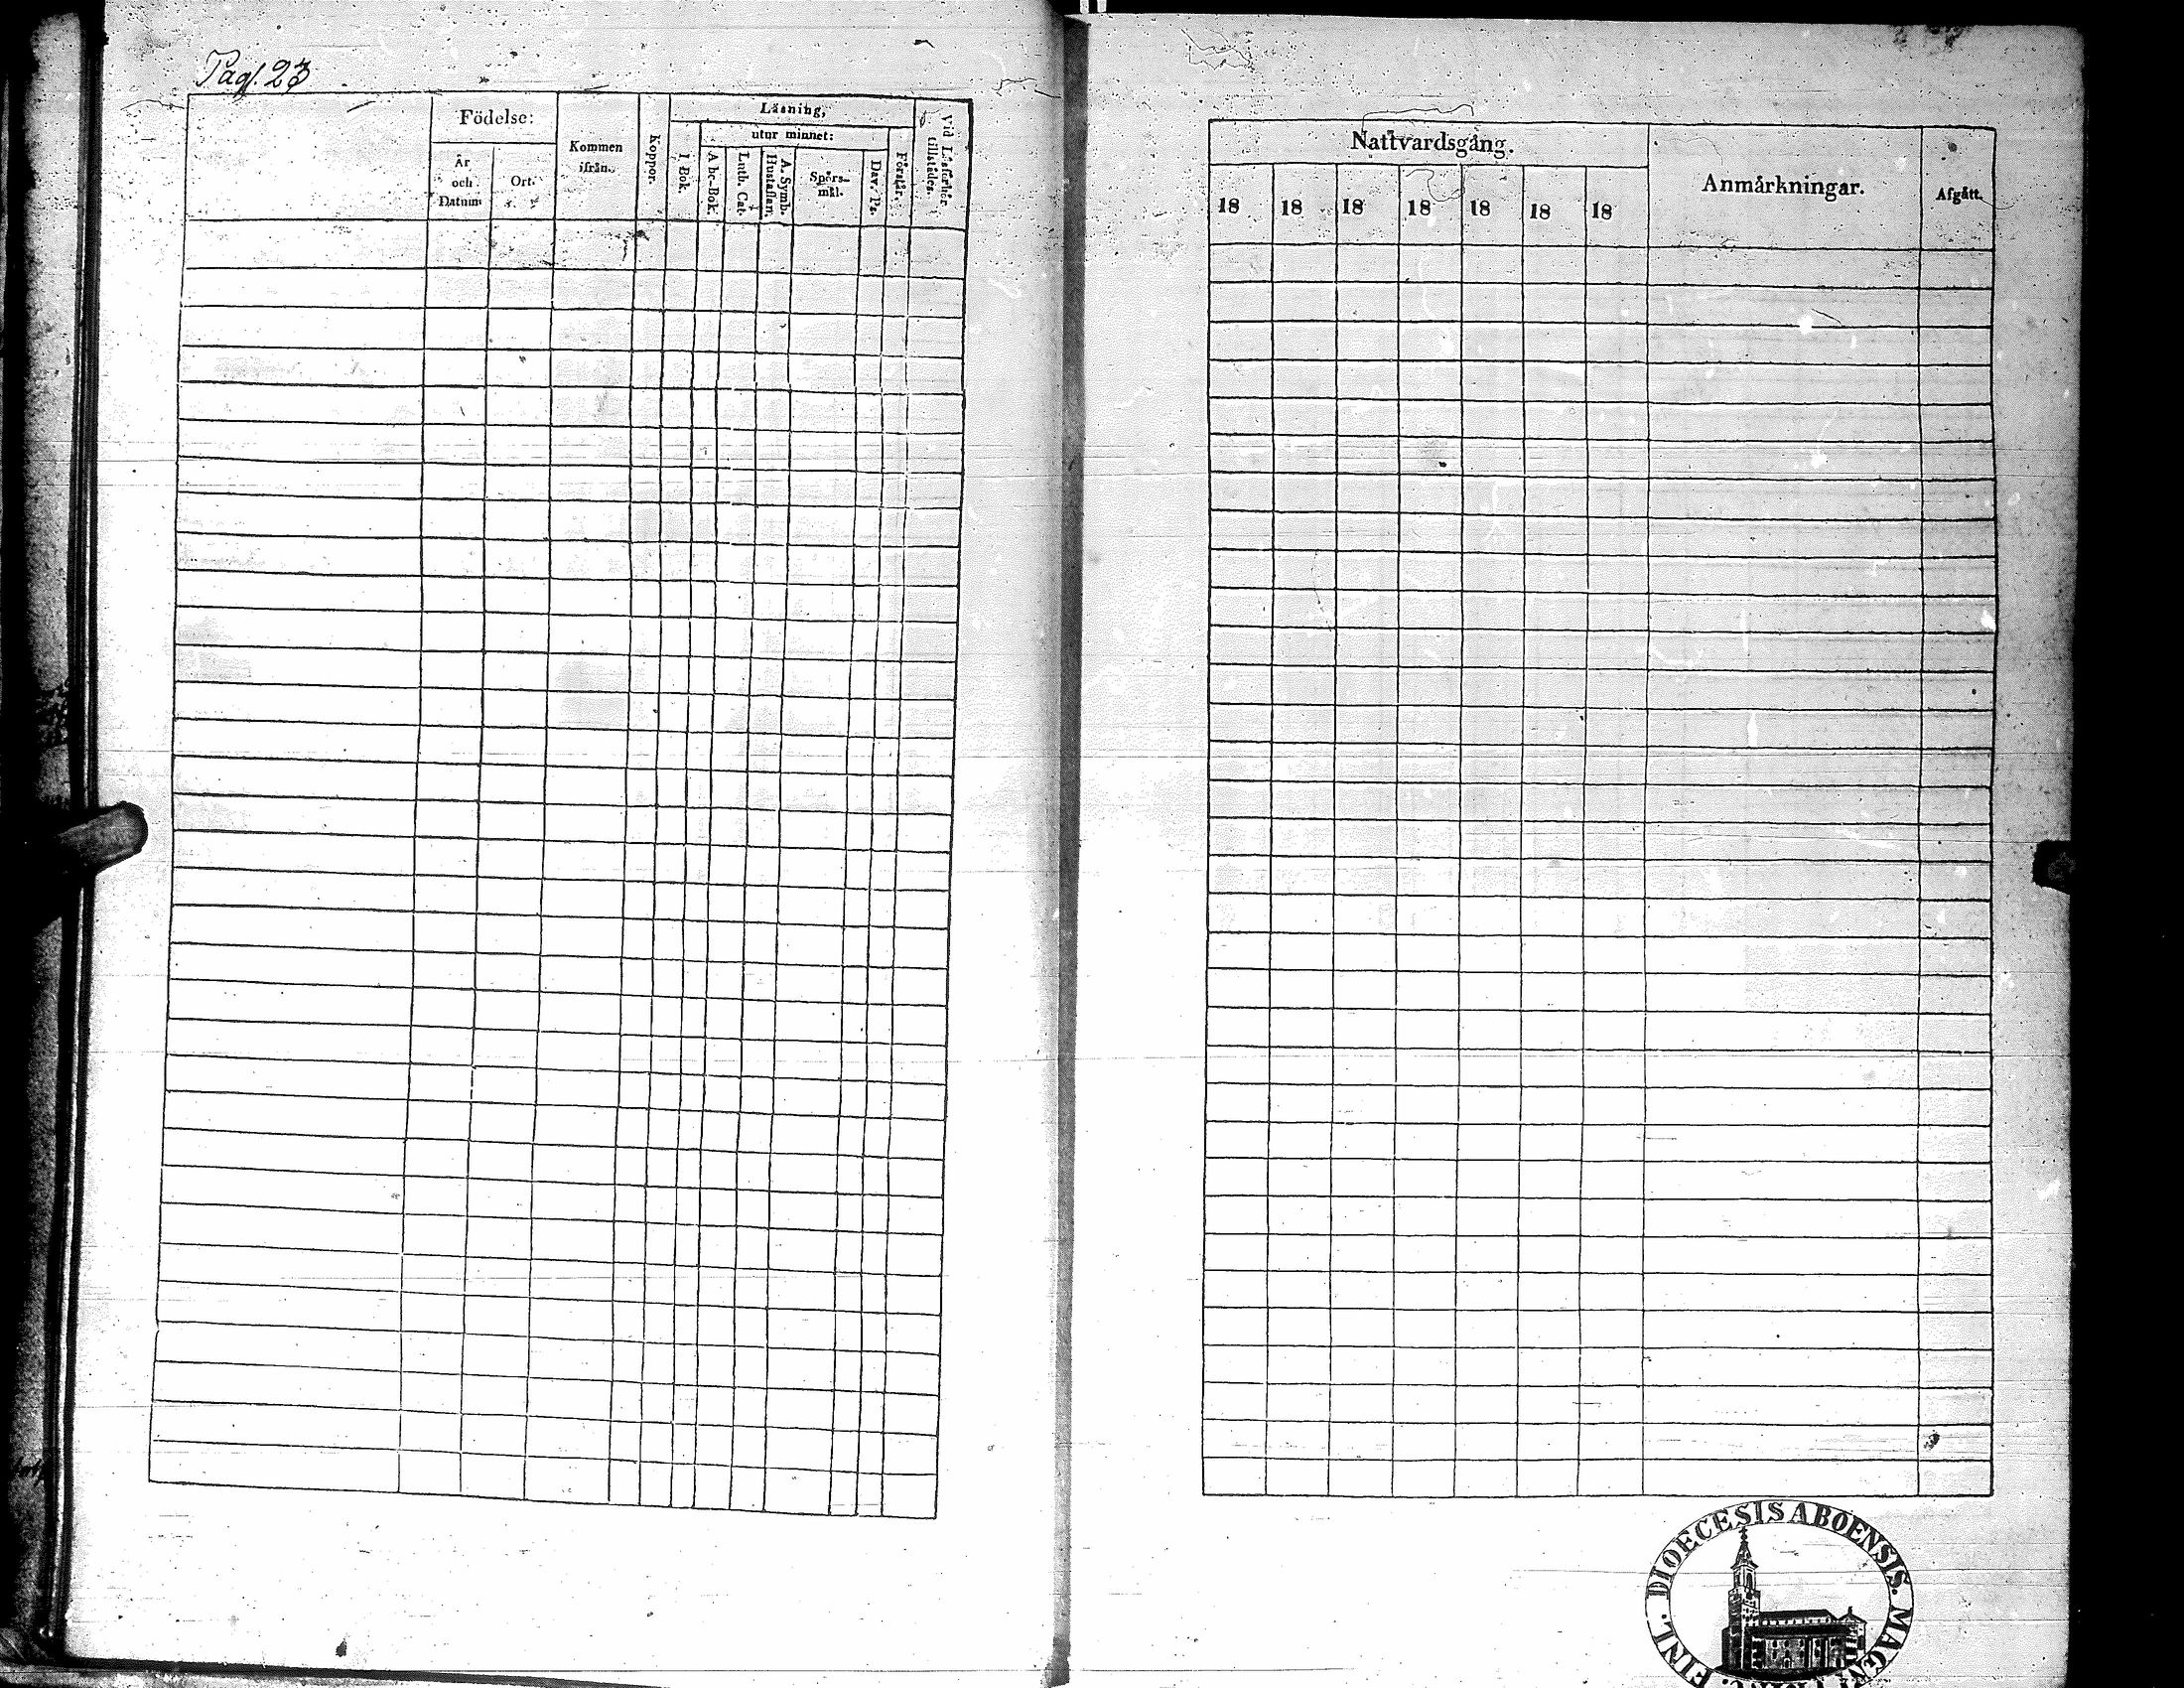 Pag. 23
Födelse:
År
och
Datum
Ort.
Kommen
ifrån.
Koppor.
Läsning,
I Bok.
utur minnet:
A b c-Bok.
Luth. Cat.
A. Symb.
Hustaflan.
Spörs-
mål.
Dav. Ps.
Förstår.
Vid Läsförhör
tillstädes.
Nattvardsgång.
18 18 18 18 18 18 18
Anmårkningar.
Afgått.
DIOECESIS ABOENSIS. MAGNI
FINL.